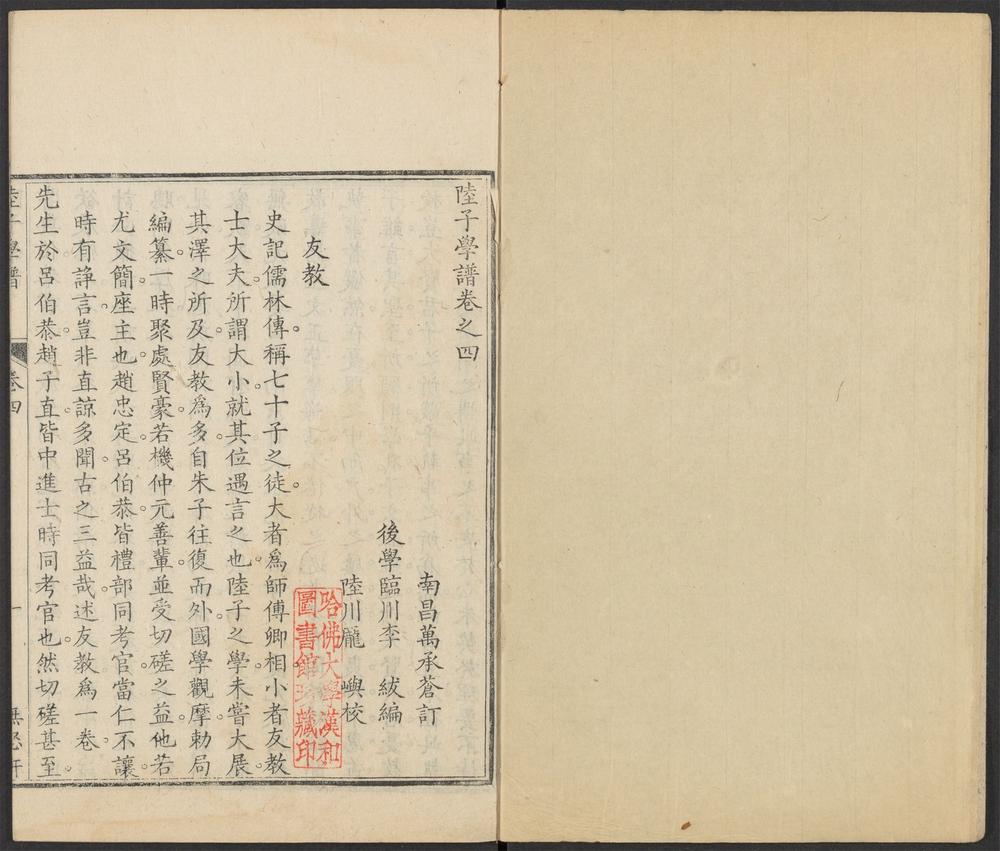 陸子學譜卷之四
南昌萬承蒼訂
後學臨川李紱編
陸川龎嶼校
友教
史記儒林傳稱七十子之徒大者爲師傅卿相小者友教
士大夫所謂大小就其位遇言之也陸子之學未嘗大展
其澤之所及友教爲多自朱子往復而外國學觀摩勅局
編纂一時聚處賢豪若機仲元善輩並受切磋之益他若
尤文簡座主也趙忠定呂伯恭皆禮部同考官當仁不讓
時有諍言豈非直諒多聞古之三益哉述友教爲一卷
先生於呂伯恭趙子直皆中進士時同考官也然切磋甚至
陸子學譜 卷四 一 無怒軒
哈佛大學漢和
圖書館珍藏印